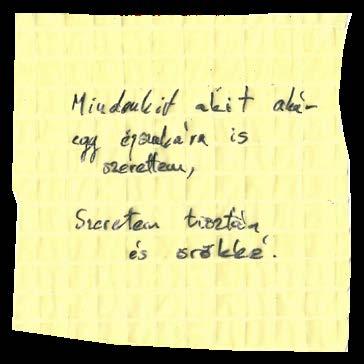 Mindenkit akit aká-
egy éjszakára is
szerettem,
Szeretem tisztán
és örökké.